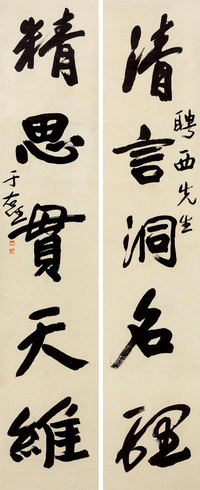 清言洞名理
聘西先生
精思貫天維
于右任